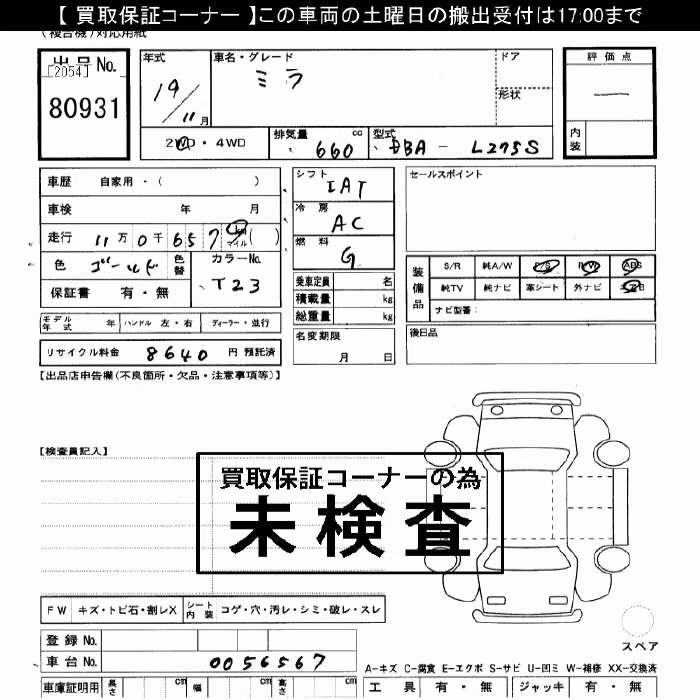 【 買取保証コーナー 】この車両の土曜日の搬出受付は17:00まで
(複合機)対応用紙
出品 No.
[2054]
80931
年式
19/11月
車名・グレード
ミラ
ドア
形状
評価点
内装
2WD・4WD
排気量 660 cc
型式 DBA - L275S
車歴 自家用・( )
車検 年 月
走行 11万0千657 km マイル ( )
色 ゴールド 色替
カラーNo. T23
保証書 有・無
シフト IAT
冷房 AC
燃料 G
乗車定員 名
積載量 kg
総重量 kg
セールスポイント
装備品
S/R 純A/W P/S P/W ABS
純TV 純ナビ 革シート 外ナビ エアB
ナビ型番:
モデル年式 年 ハンドル 左・右 ディーラー・並行
名変期限 月 日
後日品
リサイクル料金 8640 円 預託済
【出品店申告欄(不良箇所・欠品・注意事項等)】
【検査員記入】
買取保証コーナーの為
未検査
FW キズ・トビ石・割レX シート内装 コゲ・穴・汚レ・シミ・破レ・スレ
スペア
登録 No.
車台 No. 0056567
A-キズ C-腐食 E-エクボ S-サビ U-凹ミ W-補修 XX-交換済
車庫証明用 長さ cm 幅 cm 高さ cm
工具 有・無 ジャッキ 有・無